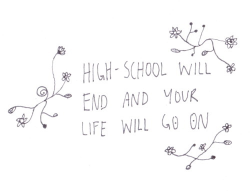 HIGH-SCHOOL WILL
END AND YOUR
LIFE WILL GO ON